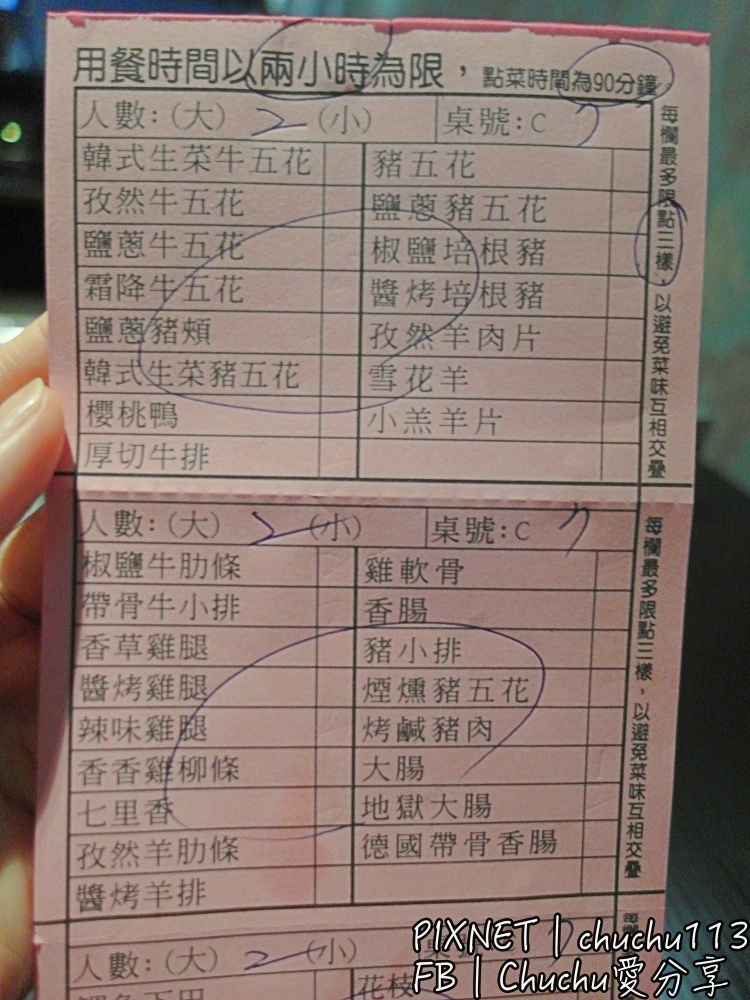 用餐時間以兩小時為限，點菜時間為90分鐘
人數:(大) 2 (小) 桌號:C 7
韓式生菜牛五花 豬五花
孜然牛五花 鹽蔥豬五花
鹽蔥牛五花 椒鹽培根豬
霜降牛五花 醬烤培根豬
鹽蔥豬頰 孜然羊肉片
韓式生菜豬五花 雪花羊
櫻桃鴨 小羔羊片
厚切牛排
每欄最多限點三樣，以避免菜味互相交疊
人數:(大) 2 (小) 桌號:C 7
椒鹽牛肋條 雞軟骨
帶骨牛小排 香腸
香草雞腿 豬小排
醬烤雞腿 煙燻豬五花
辣味雞腿 烤鹹豬肉
香香雞柳條 大腸
七里香 地獄大腸
孜然羊肋條 德國帶骨香腸
醬烤羊排
每欄最多限點三樣，以避免菜味互相交疊
人數:(大) 2 (小) 7
花枝
PIXNET | chuchu113
FB | Chuchu愛分享